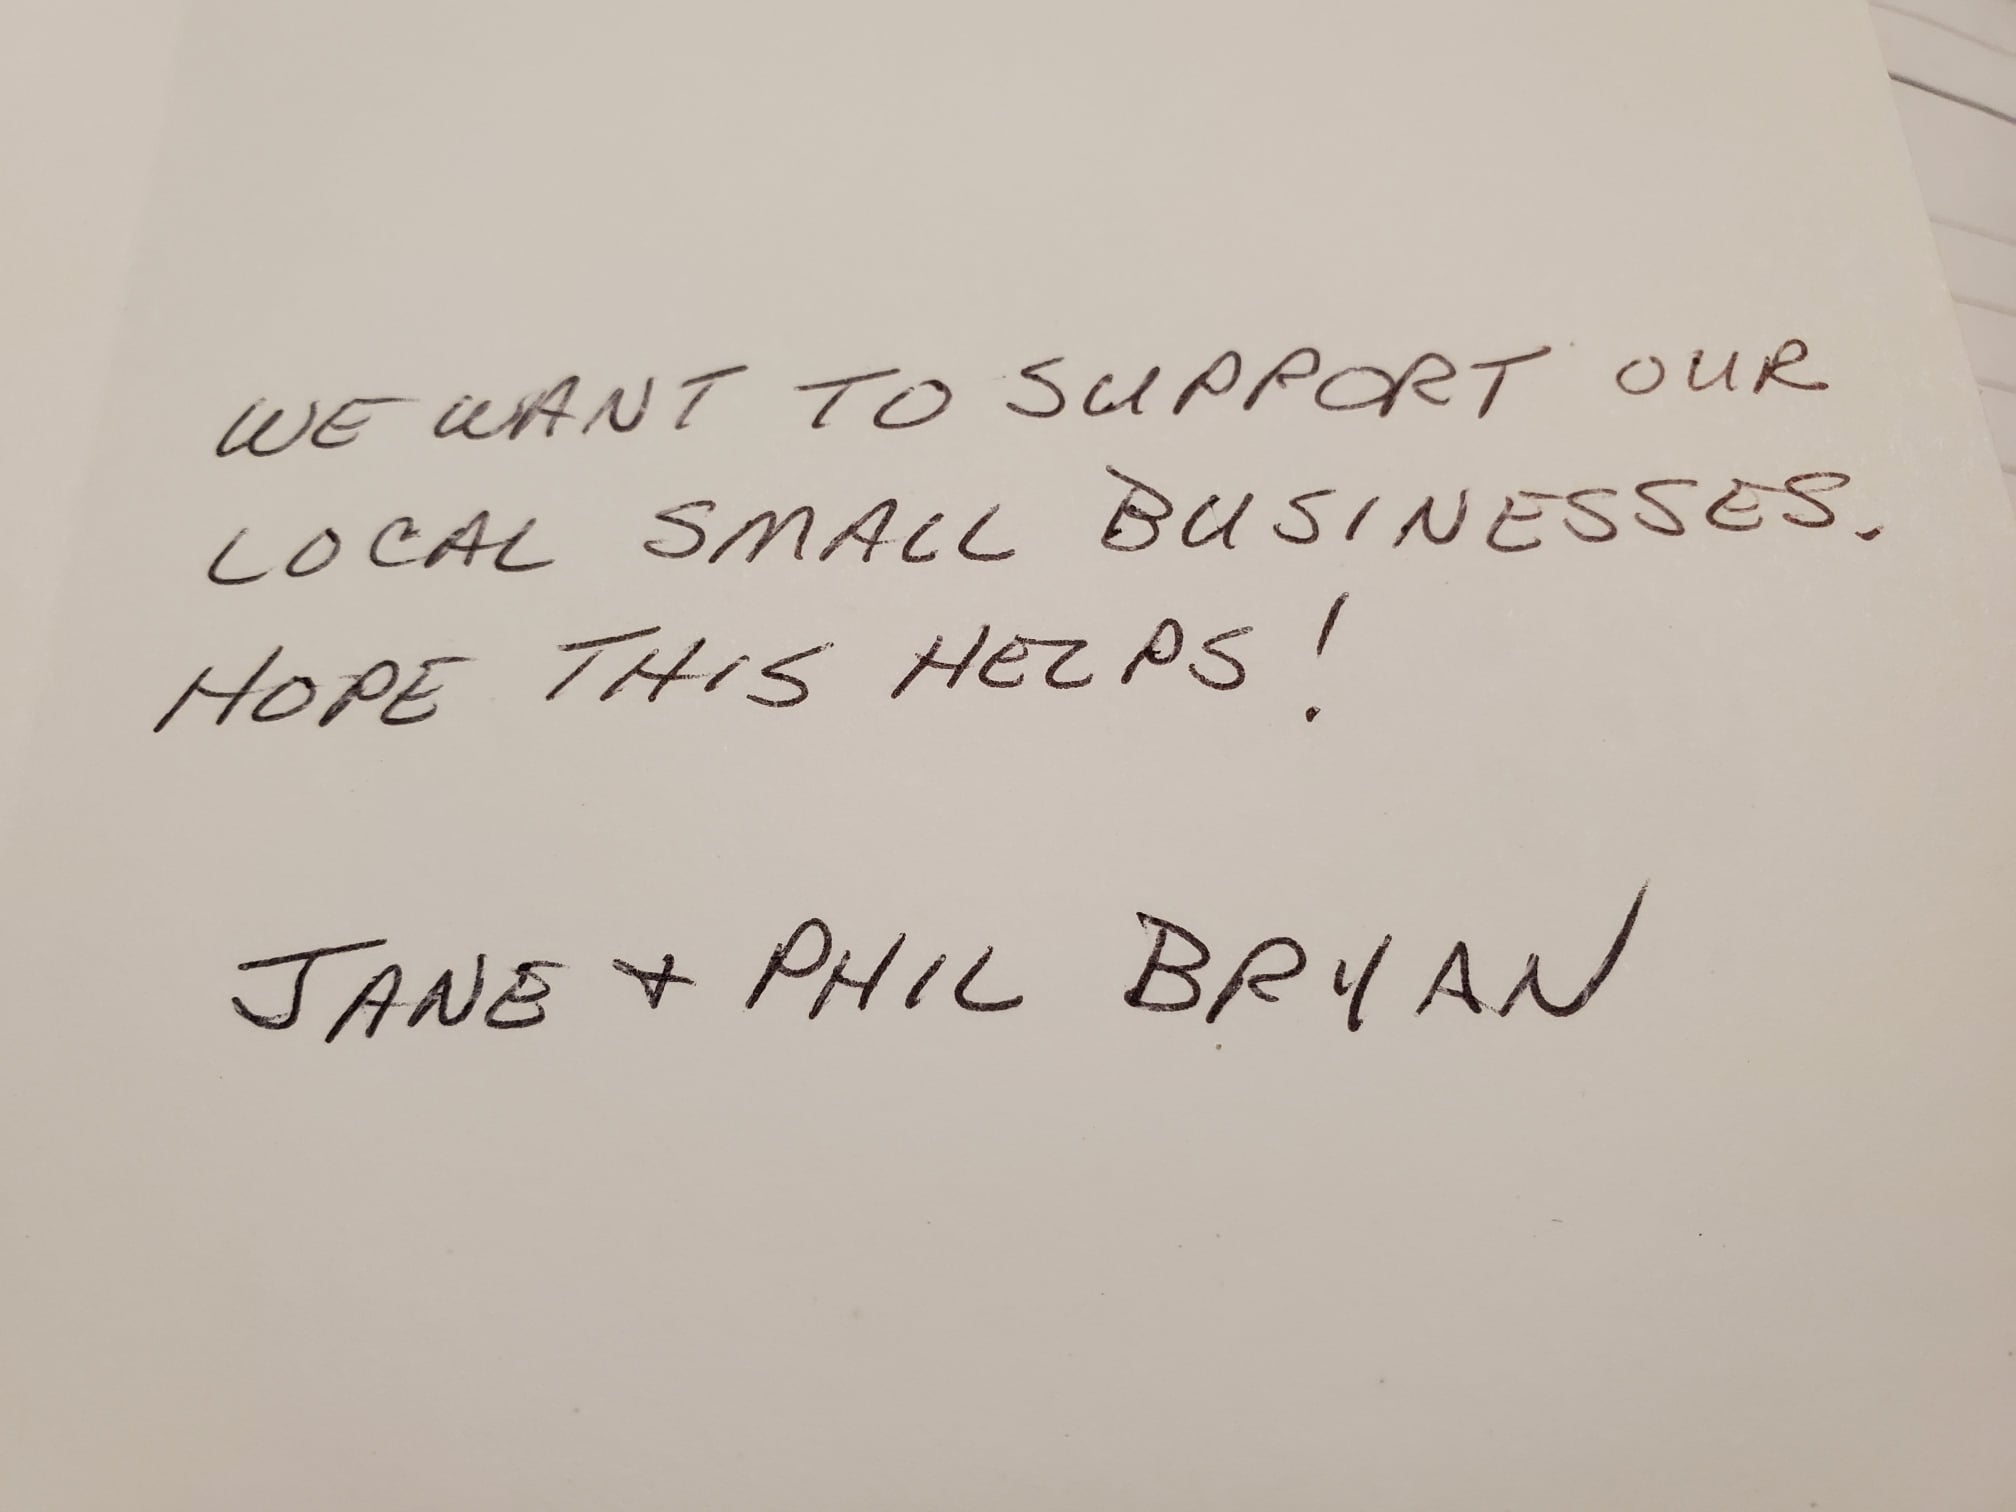 WE WANT TO SUPPORT OUR
LOCAL SMALL BUSINESSES.
HOPE THIS HELPS!
JANE + PHIL BRYAN